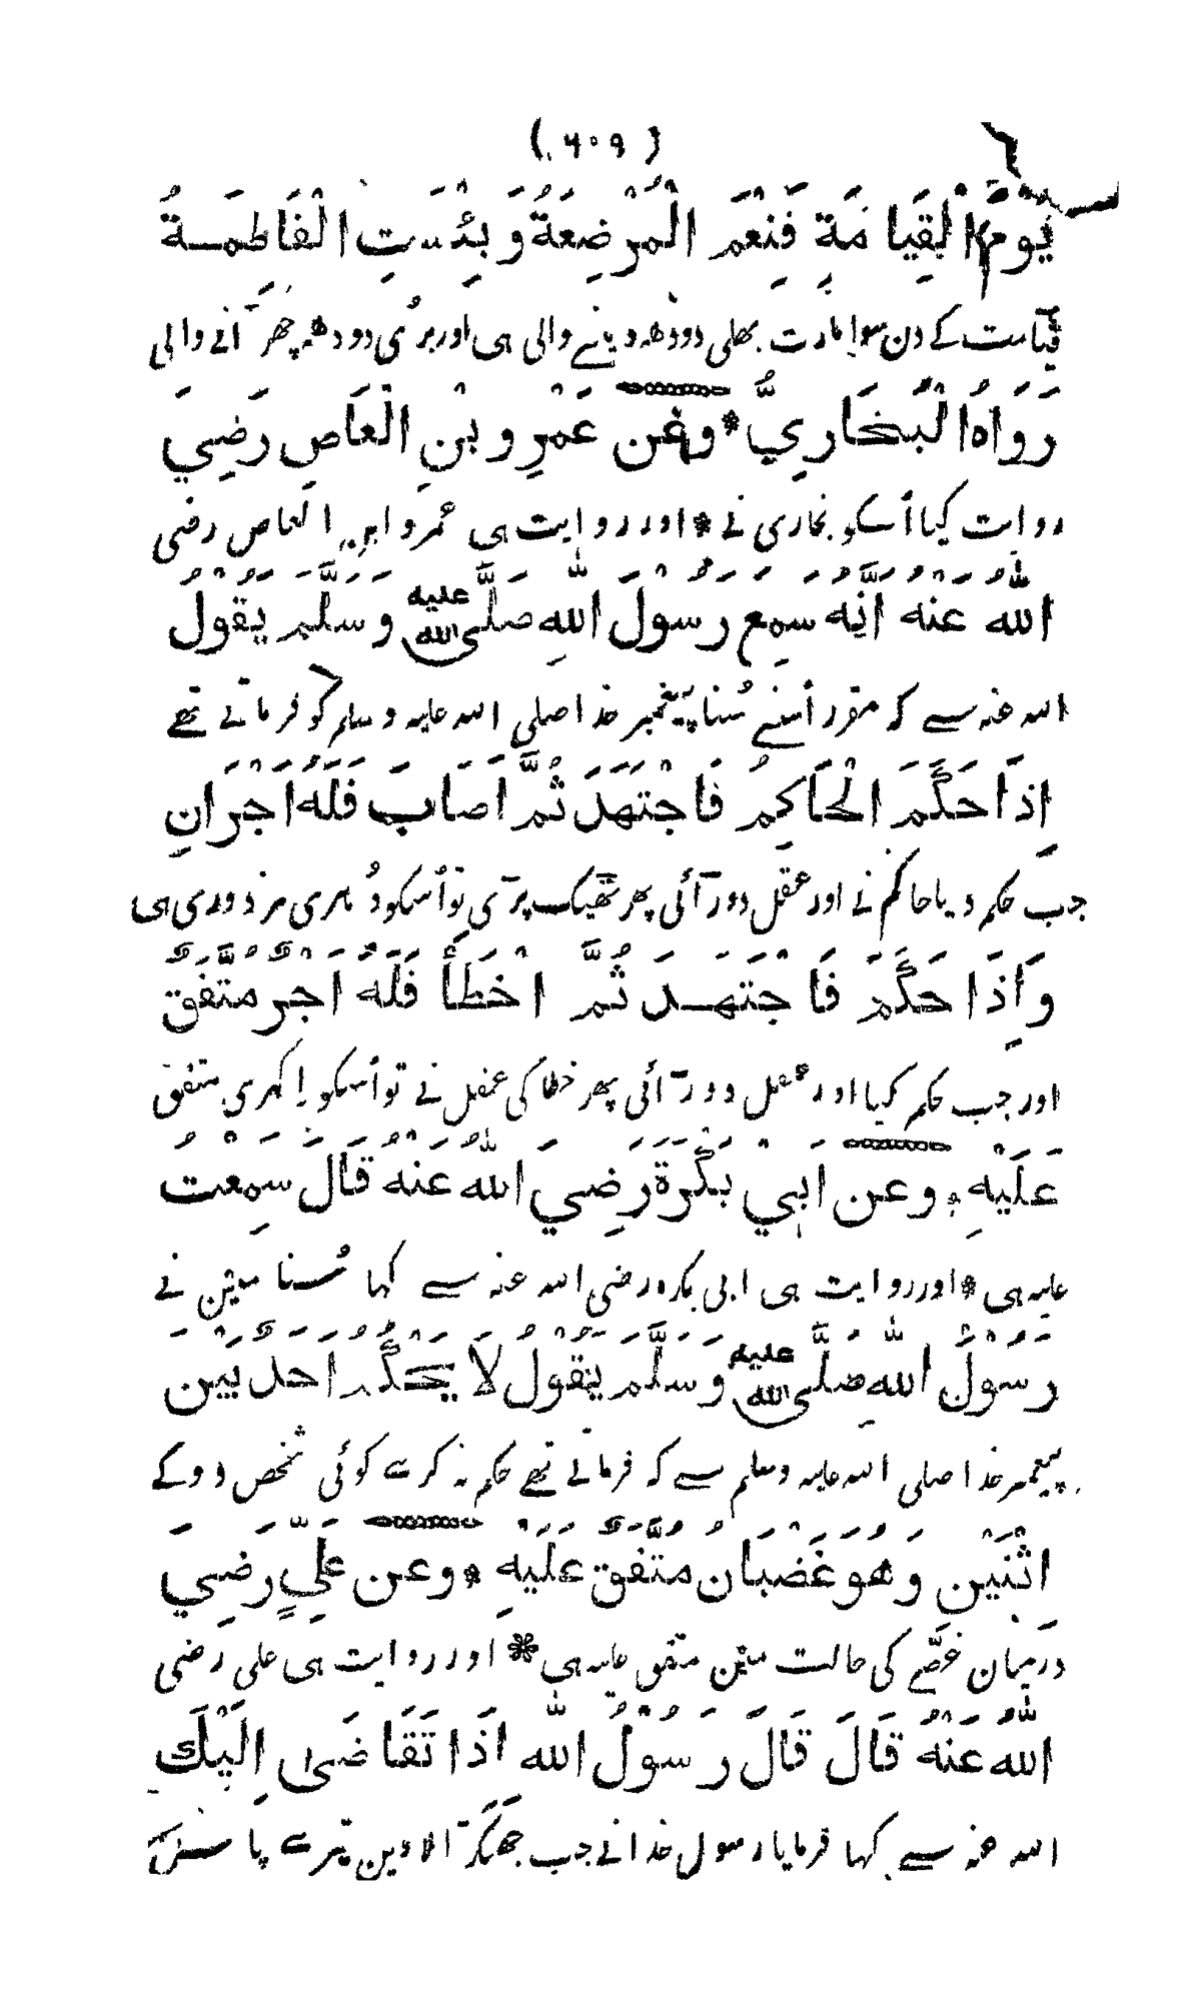 (٦٠٩)
يَوْمَ الْقِيَامَةِ فَنِعْمَ الْمُرْضِعَةُ وَبِئْسَتِ الْفَاطِمَةُ
قیامت کے دن سو امارت بھلی دودھ دینے والی ہی اور بری دودھ چھرانے والی
رَوَاهُ الْبُخَارِيُّ * وَعَنْ عَمْرِو بْنِ الْعَاصِ رَضِيَ
روایت کیا اُسکو بخاری نے * اور روایت ہی عمرو ابن العاص رضی
اللّٰهُ عَنْهُ اَنَّهُ سَمِعَ رَسُوْلَ اللّٰهِ صَلَّى اللّٰه عليه وَسَلَّمَ يَقُوْلُ
الله عنہ سے کہ مقرر اُسنے سُنا پیغمبر خدا صلی الله علیہ وسلم کو فرماتے تھے
اِذَا حَكَمَ الْحَاكِمُ فَاجْتَهَدَ ثُمَّ اَصَابَ فَلَهُ اَجْرَانِ
جب حکم دیا حاکم نے اور عقل دورآئی پھر ٹھیک پرَی تو اُسکو دُہری مزدوری ہی
وَاِذَا حَكَمَ فَاجْتَهَدَ ثُمَّ اَخْطَأَ فَلَهُ اَجْرٌ مُتَّفَقٌ
اور جب حکم کیا اور عقل دورآئی پھر خطا کی عقل نے تو اُسکو اِکہری متفق
عَلَيْهِ * وَعَنْ اَبِيْ بَكْرَةَ رَضِيَ اللّٰهُ عَنْهُ قَالَ سَمِعْتُ
علیہ ہی * اور روایت ہی ابی بکرہ رضی الله عنہ سے کہا سُنا میں نے
رَسُوْلَ اللّٰهِ صَلَّى اللّٰه عليه وَسَلَّمَ يَقُوْلُ لَا يَحْكُمْ اَحَدٌ بَيْنَ
پیغمبر خدا صلی الله علیہ وسلم سے کہ فرماتے تھے حکم نہ کرے کوئی شخص دو کے
اِثْنَيْنِ وَهُوَ غَضْبَانُ مُتَّفَقٌ عَلَيْهِ * وَعَنْ عَلِيٍّ رَضِيَ
درمیان غصّے کی حالت میں متفق علیہ ہی * اور روایت ہی علی رضی
اللّٰهُ عَنْهُ قَالَ قَالَ رَسُوْلُ اللّٰه اِذَا تَقَاضَى اِلَيْكَ
الله عنہ سے کہا فرمایا رسول خدا نے جب جھگرَا لاوین تیرے پاس